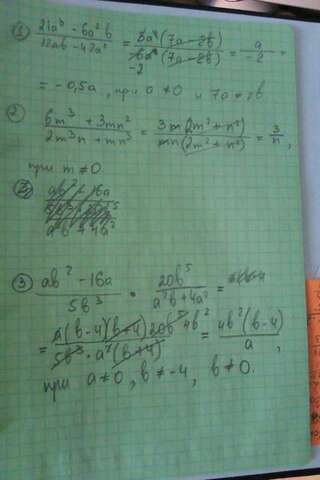 ① (21a³ - 6a²b)/(12ab - 42a²) = 3a²(7a - 2b)/-6a(7a - 2b) = a/-2 =
= -0,5a, при a ≠ 0 и 7a ≠ 2b
② (6m³ + 3mn²)/(2m³n + mn³) = 3m(2m² + n²)/mn(2m² + n²) = 3/n,
при m ≠ 0.
③ (ab² - 16a)/5b³ · 20b⁵/(a²b + 4a²) =
= a(b-4)(b+4) 20b⁵ 4b²/5b³ · a²(b+4) = 4b²(b-4)/a,
при a ≠ 0, b ≠ -4, b ≠ 0.